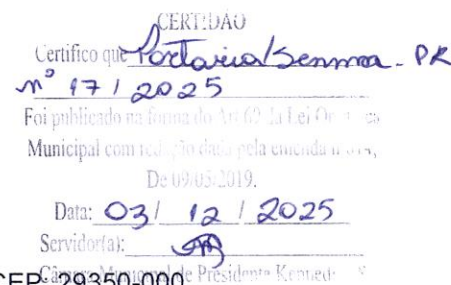 CERTIDÃO
Certifico que Portaria/Semma - PK
nº 17 / 2025
Foi publicado na forma do Art 62 da Lei Orgânica
Municipal com redação dada pela emenda nº 014,
De 09/05/2019.
Data: 03/ 12 / 2025
Servidor(a):
CEP: 29350-000
Câmara Municipal de Presidente Kennedy